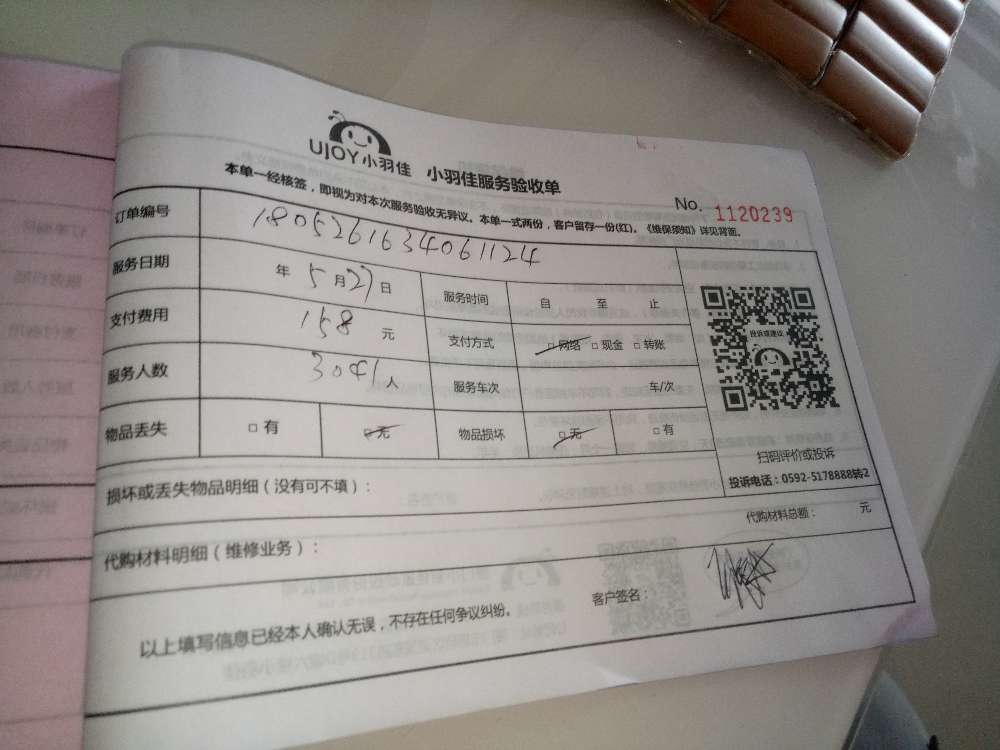 UJOY小羽佳 小羽佳服务验收单
本单一经核签，即视为对本次服务验收无异议。本单一式两份，客户留存一份(红)。《维保须知》详见背面。
No. 1120239
订单编号 1805261634061124
服务日期 年 5月27日 服务时间 自 至 止
支付费用 158 元 支付方式 □网络 □现金 □转账
服务人数 3041人 服务车次 车/次
物品丢失 □有 □无 物品损坏 □无 □有
投诉或建议
扫码评价或投诉
投诉电话：0592-5178888转2
损坏或丢失物品明细（没有可不填）：
代购材料总额： 元
代购材料明细（维修业务）：
客户签名：
以上填写信息已经本人确认无误，不存在任何争议纠纷。